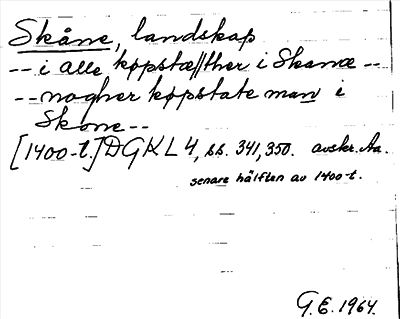 Skåne, landskap
-- i alle køpstæ//ther i Skanæ --
-- nogher køpstate man i
Skone --
[1400-t.] DGKL 4, ss. 341, 350. avskr. Aa.
senare hälften av 1400-t.
G.E. 1964.